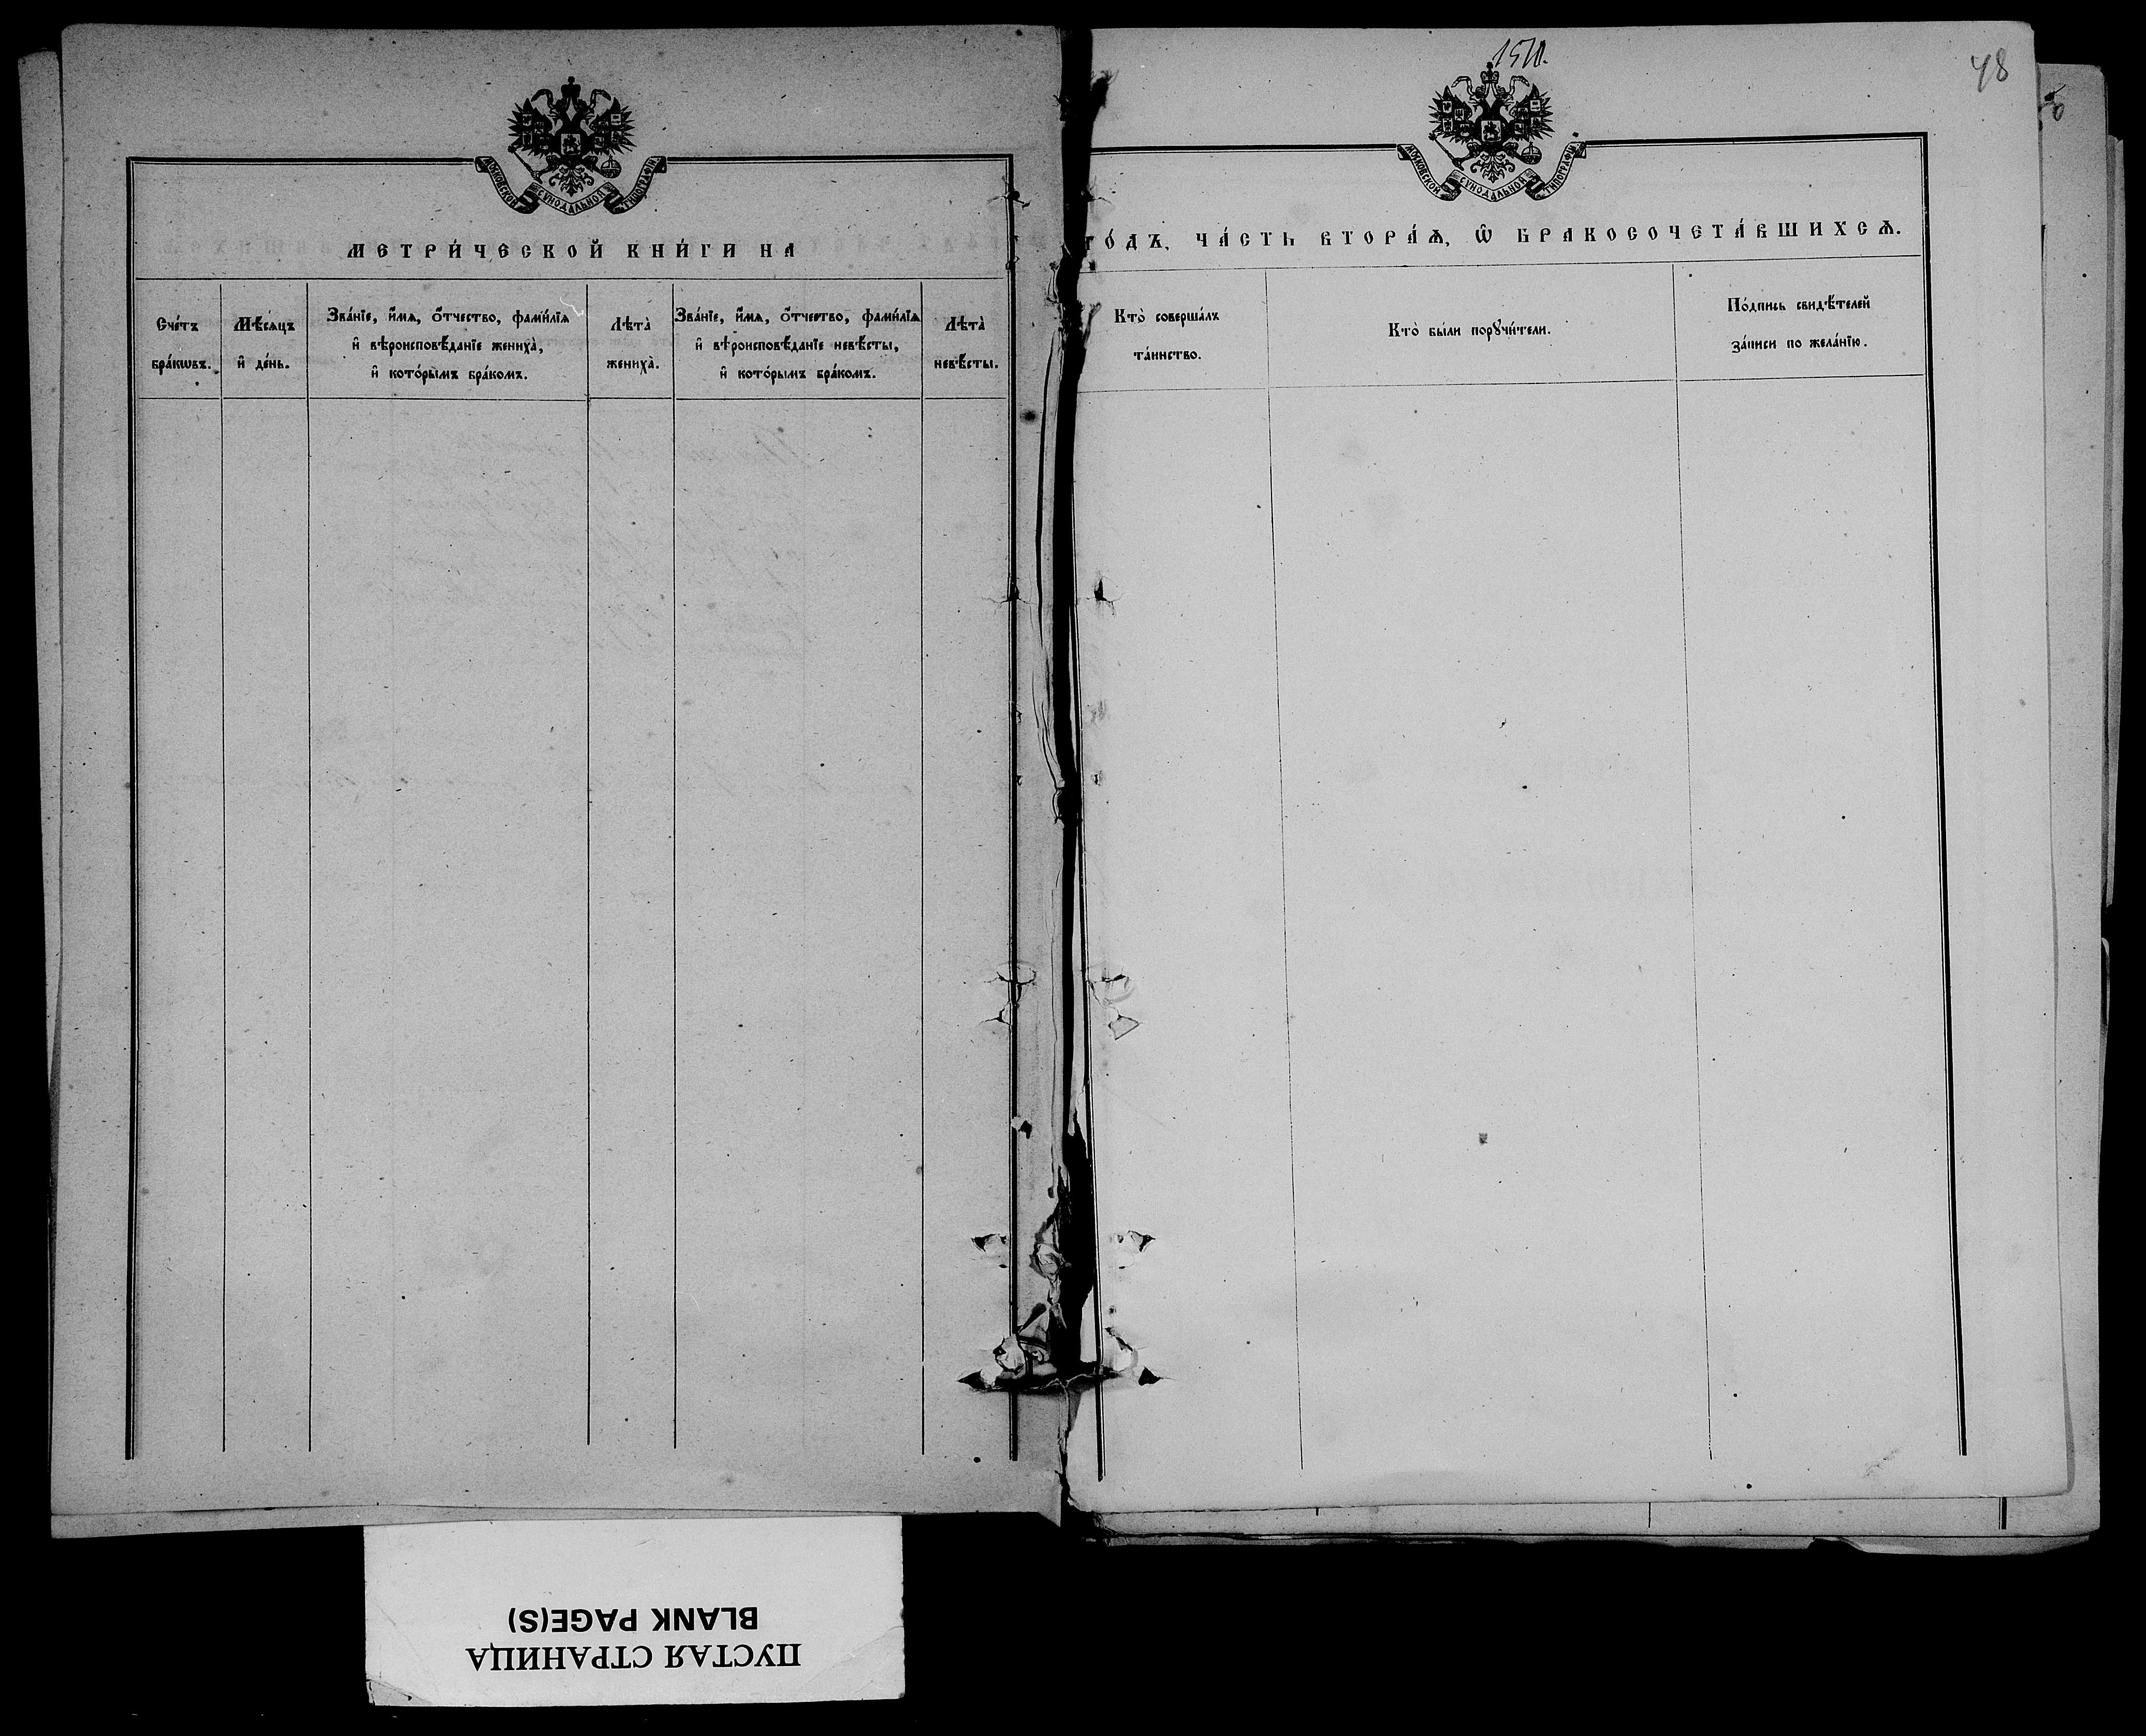 МОСКОВСКОЙ СѴНОДАЛЬНОЙ ТИПОГРАФІИ
МЕТРИ́ЧЕСКОЙ КНИ́ГИ НА
Сче́тъ
бра́кѡвъ.
Мѣ́сѧцъ
и҆ де́нь.
Зва́нїе, и҆́мѧ, ѻ҆́тчество, фами́лїѧ
и҆ вѣроисповѣ́данїе жениха̀,
и҆ кото́рымъ бра́комъ.
Лѣта̀
жениха̀.
Зва́нїе, и҆́мѧ, ѻ҆́тчество, фами́лїѧ
и҆ вѣроисповѣ́данїе невѣ́сты,
и҆ кото́рымъ бра́комъ.
Лѣта̀
невѣ́сты.
48
МОСКОВСКОЙ СѴНОДАЛЬНОЙ ТИПОГРАФІИ
ГО́ДЪ, ЧА́СТЬ ВТОРА́Ѧ, Ѽ БРАКОСОЧЕТА́ВШИХСѦ.
Кто̀ соверша́лъ
та́инство.
Кто̀ бы́ли порꙋчи́тели.
По́дпись свидѣ́телей
за́писи по жела́нїю.
ПУСТАЯ СТРАНИЦА
BLANK PAGE(S)